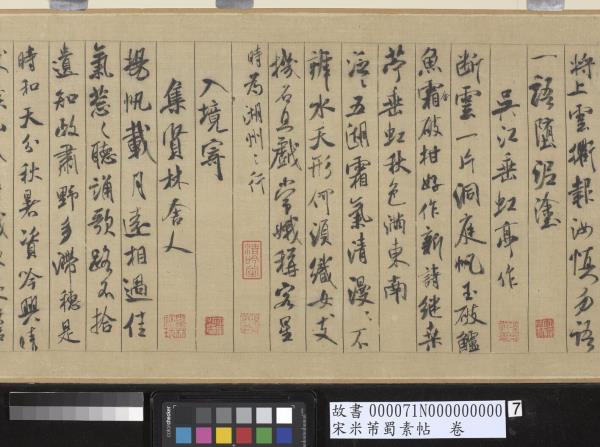 將上雲衢報汝慎勿語
一語墮泥塗
吳江垂虹亭作
断雲一片洞庭帆玉破鱸
魚霜破柑好作新詩繼桑
苧垂虹秋色滿東南
泛〻五湖霜氣清漫〻不
辨水天形何須織女支
機石且戲常娥稱客星
時為湖州之行
入境寄
集賢林舍人
揚帆載月遠相過佳
氣葱〻聽誦歌路不拾
遺知政肅野多滯穗是
時和天分秋暑資吟興晴
故書 000071N000000000 7
宋米芾蜀素帖 卷